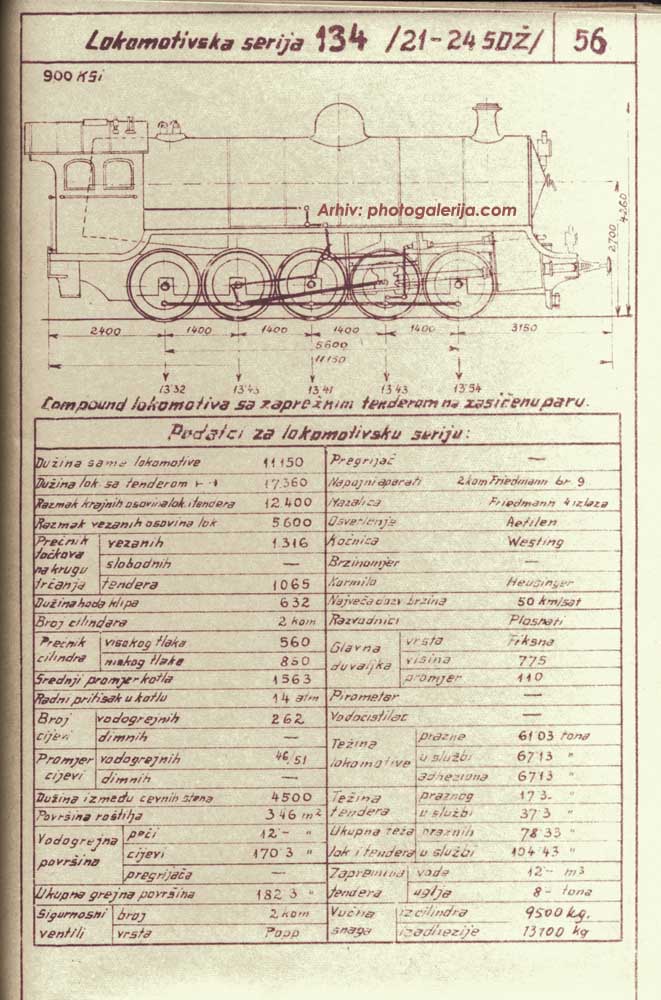 Lokomotivska serija 134 /21-24 SDŽ/ 56
900 KSi
Arhiv: photogalerija.com
4260
2700
2400 1400 1400 1400 1400 3150
5600
11150
13'32 13'43 13'41 13'43 13'54
Compound lokomotiva sa zaprežnim tenderom na zasićenu paru.
Podatci za lokomotivsku seriju:
Dužina same lokomotive 11.150 Pregrijač —
Dužina lok. sa tenderom 17.360 Napojni aparati 2 kom Friedmann br 9
Razmak krajnih osovina lok i tendera 12.400 Mazalica Friedmann 4 izlaza
Razmak vezanih osovina lok 5.600 Osvetlenje Aetilen
Prečnik točkova na krugu trčanja vezanih 1.316 Kočnica Westing
slobodnih — Brzinomjer —
tendera 1065 Kormilo Heusinger
Dužina hoda klipa 632 Najveća dozv brzina 50 km/sat
Broj cilindara 2 kom Razvodnici Plosnati
Prečnik cilindra visokog tlaka 560 Glavna duvaljka vrsta Fiksna
niskog tlaka 850 visina 775
Srednji promjer kotla 1563 promjer 110
Radni pritisak u kotlu 14 atm Pirometar —
Broj cijevi vodogrejnih 262 Vodočistilac —
dimnih — Težina lokomotive prazne 61'03 tona
Promjer cijevi vodogrejnih 46/51 u službi 67'13 "
dimnih — adheziona 67'13 "
Dužina između cevnih stena 4500 Težina tendera praznog 17'3.- "
Površina roštilja 3'46 m² u službi 37'3 "
Vodogrejna površina peći 12'- " Ukupna teža lok i tendera praznih 78'33 "
cijevi 170'3 " u službi 104'43 "
pregrijača — Zapremina tendera voda 12'- m³
Ukupna grejna površina 182'3 " uglja 8- tona
Sigurnosni ventili broj 2 kom Vučna snaga iz cilindra 9500 kg.
vrsta Popp iz adhezije 13100 kg